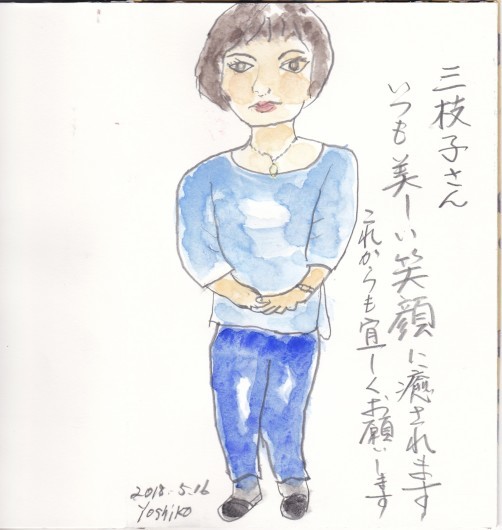 三枝子さん
いつも美しい笑顔に癒されます
これからも宜しくお願いします
2018.5.16
Yoshiko